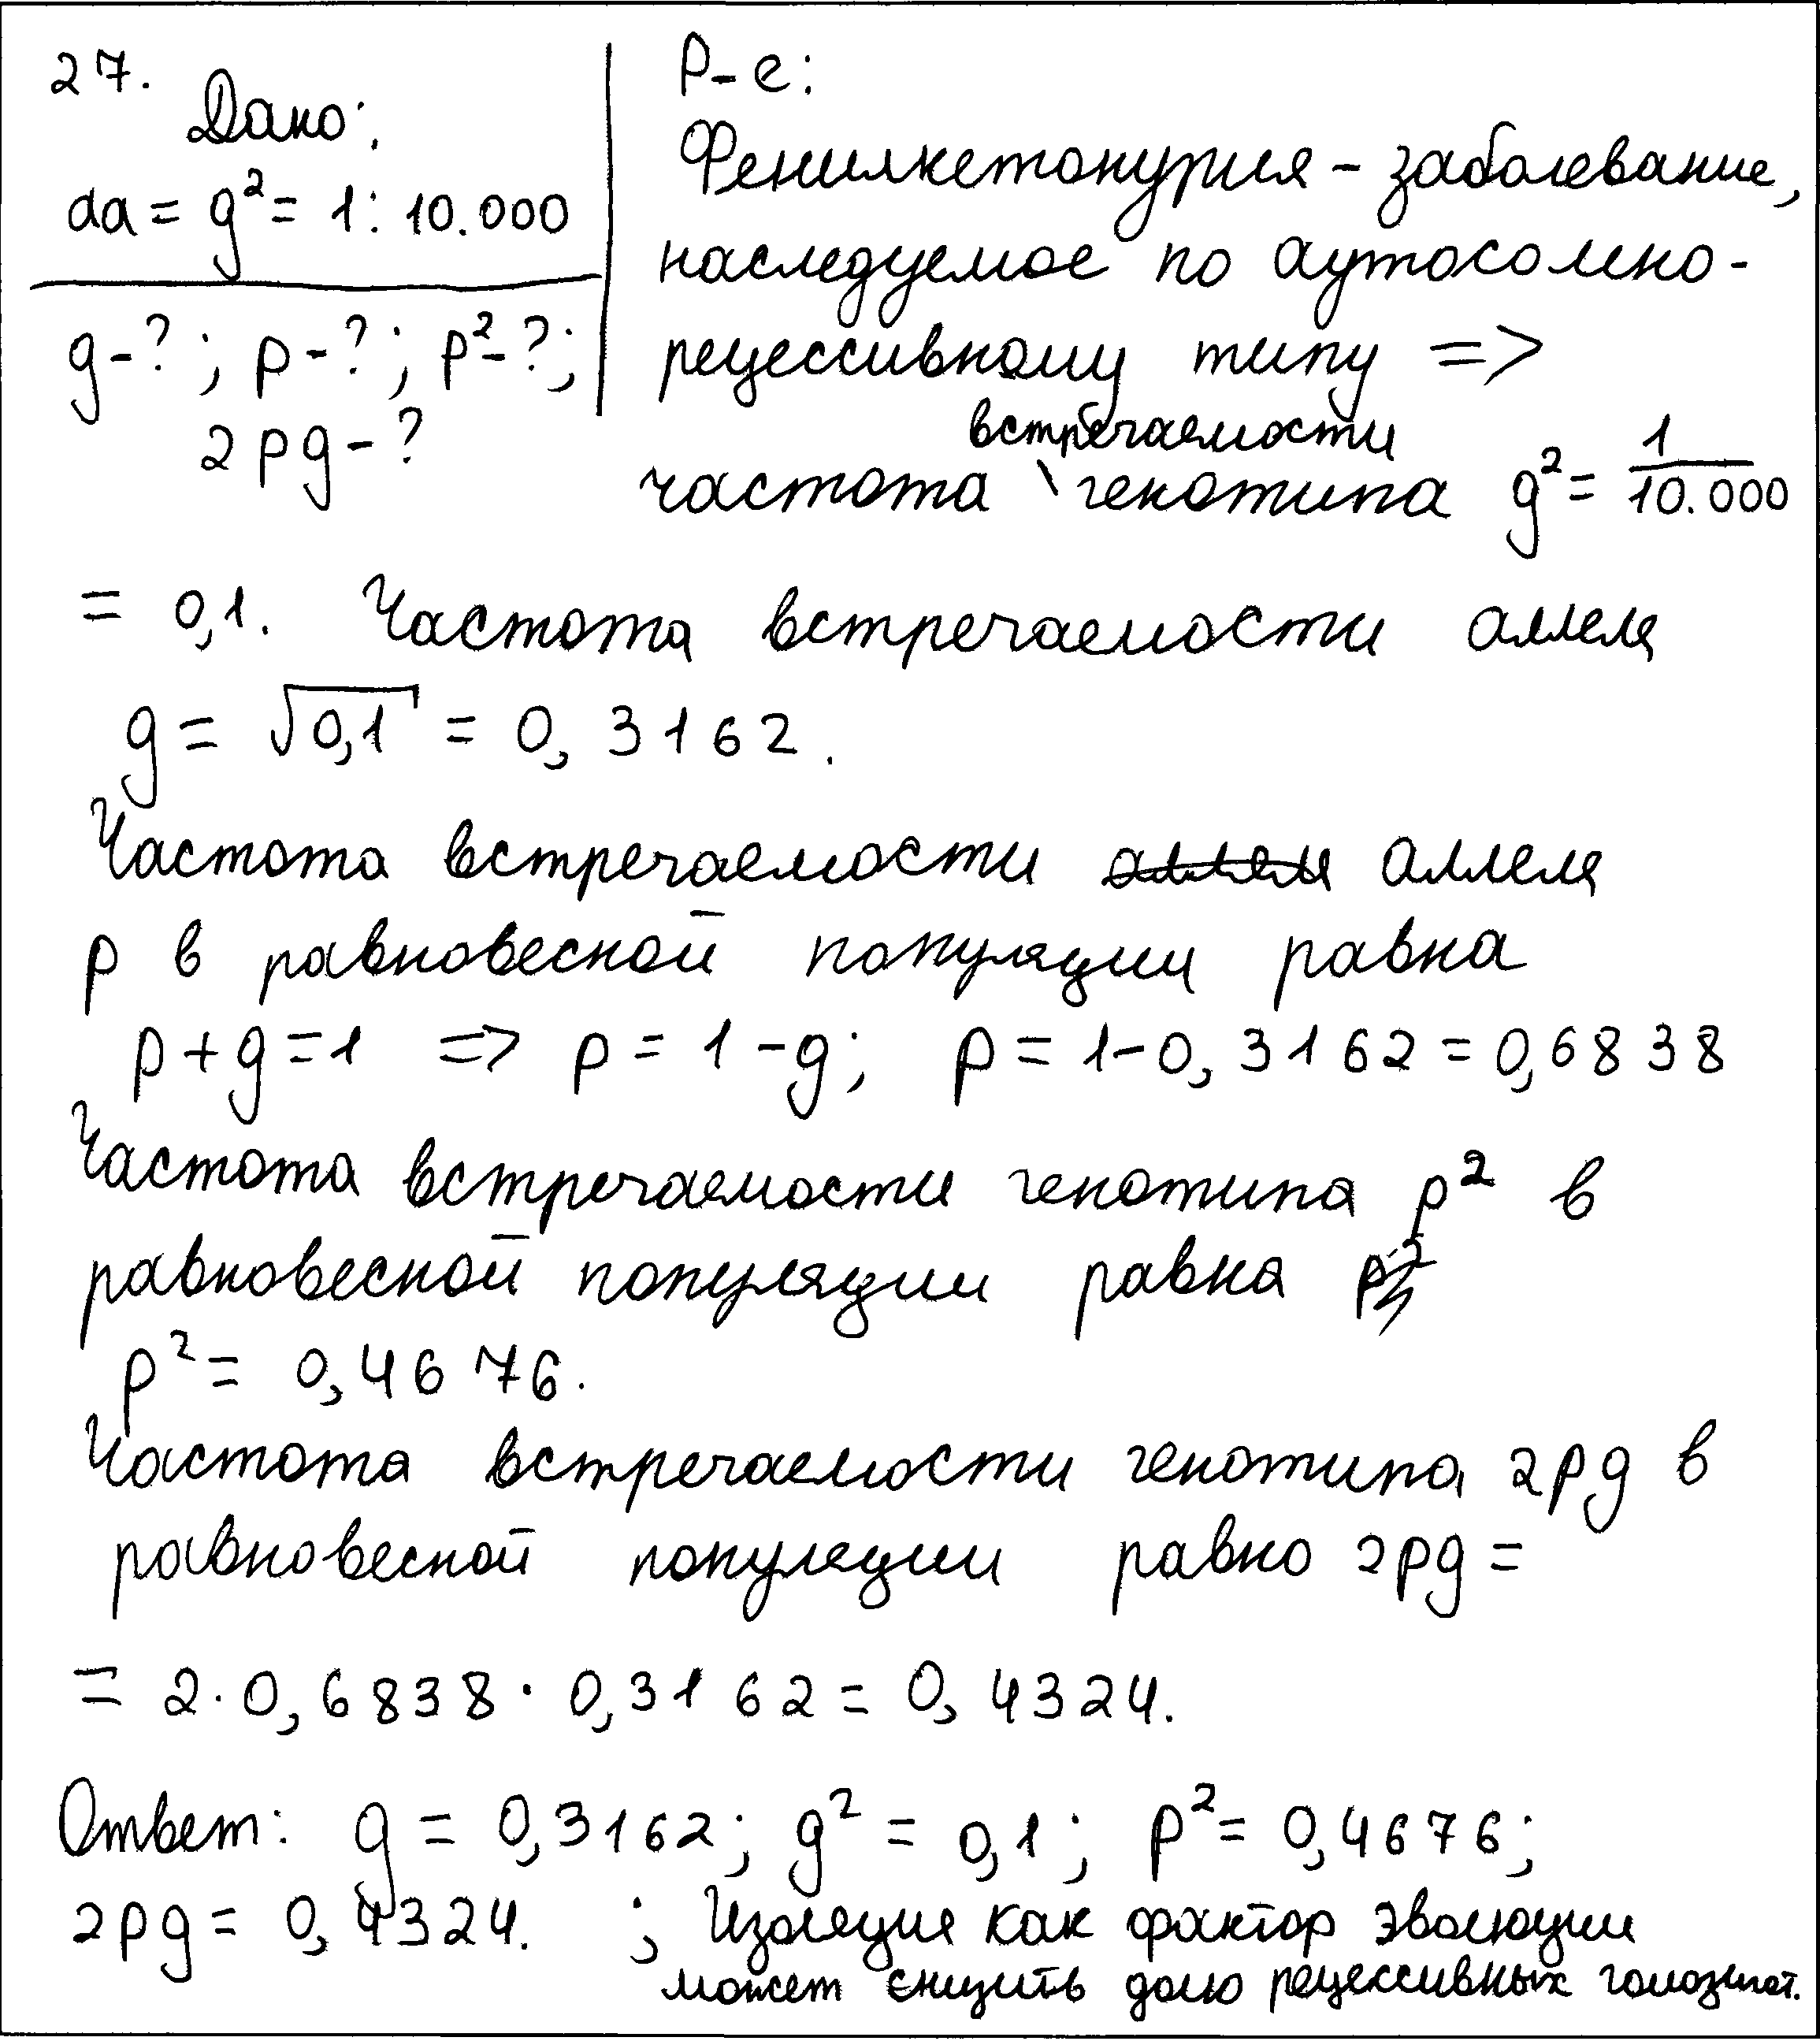 27.
Дано:
da = g² = 1: 10.000
g-?; p-?; p²-?;
2pg-?
Р-е:
Фенилкетонурия - заболевание,
наследуемое по аутосомно-
рецессивному типу =>
встречаемости
частота \ генотипа g² = 1/10.000
= 0,1. Частота встречаемости аллеля
g = √0,1 = 0,3162.
Частота встречаемости аллеля аллеля
p в равновесной популяции равна
p+g=1 => p = 1-g; p = 1-0,3162 = 0,6838
Частота встречаемости генотипа p² в
равновесной популяции равна p²
p² = 0,4676.
Частота встречаемости генотипа 2pg в
равновесной популяции равно 2pg =
= 2·0,6838·0,3162 = 0,4324.
Ответ: g = 0,3162; g² = 0,1; p² = 0,4676;
2pg = 0,4324. ; Изоляция как фактор эволюции
может снизить долю рецессивных гомозигот.